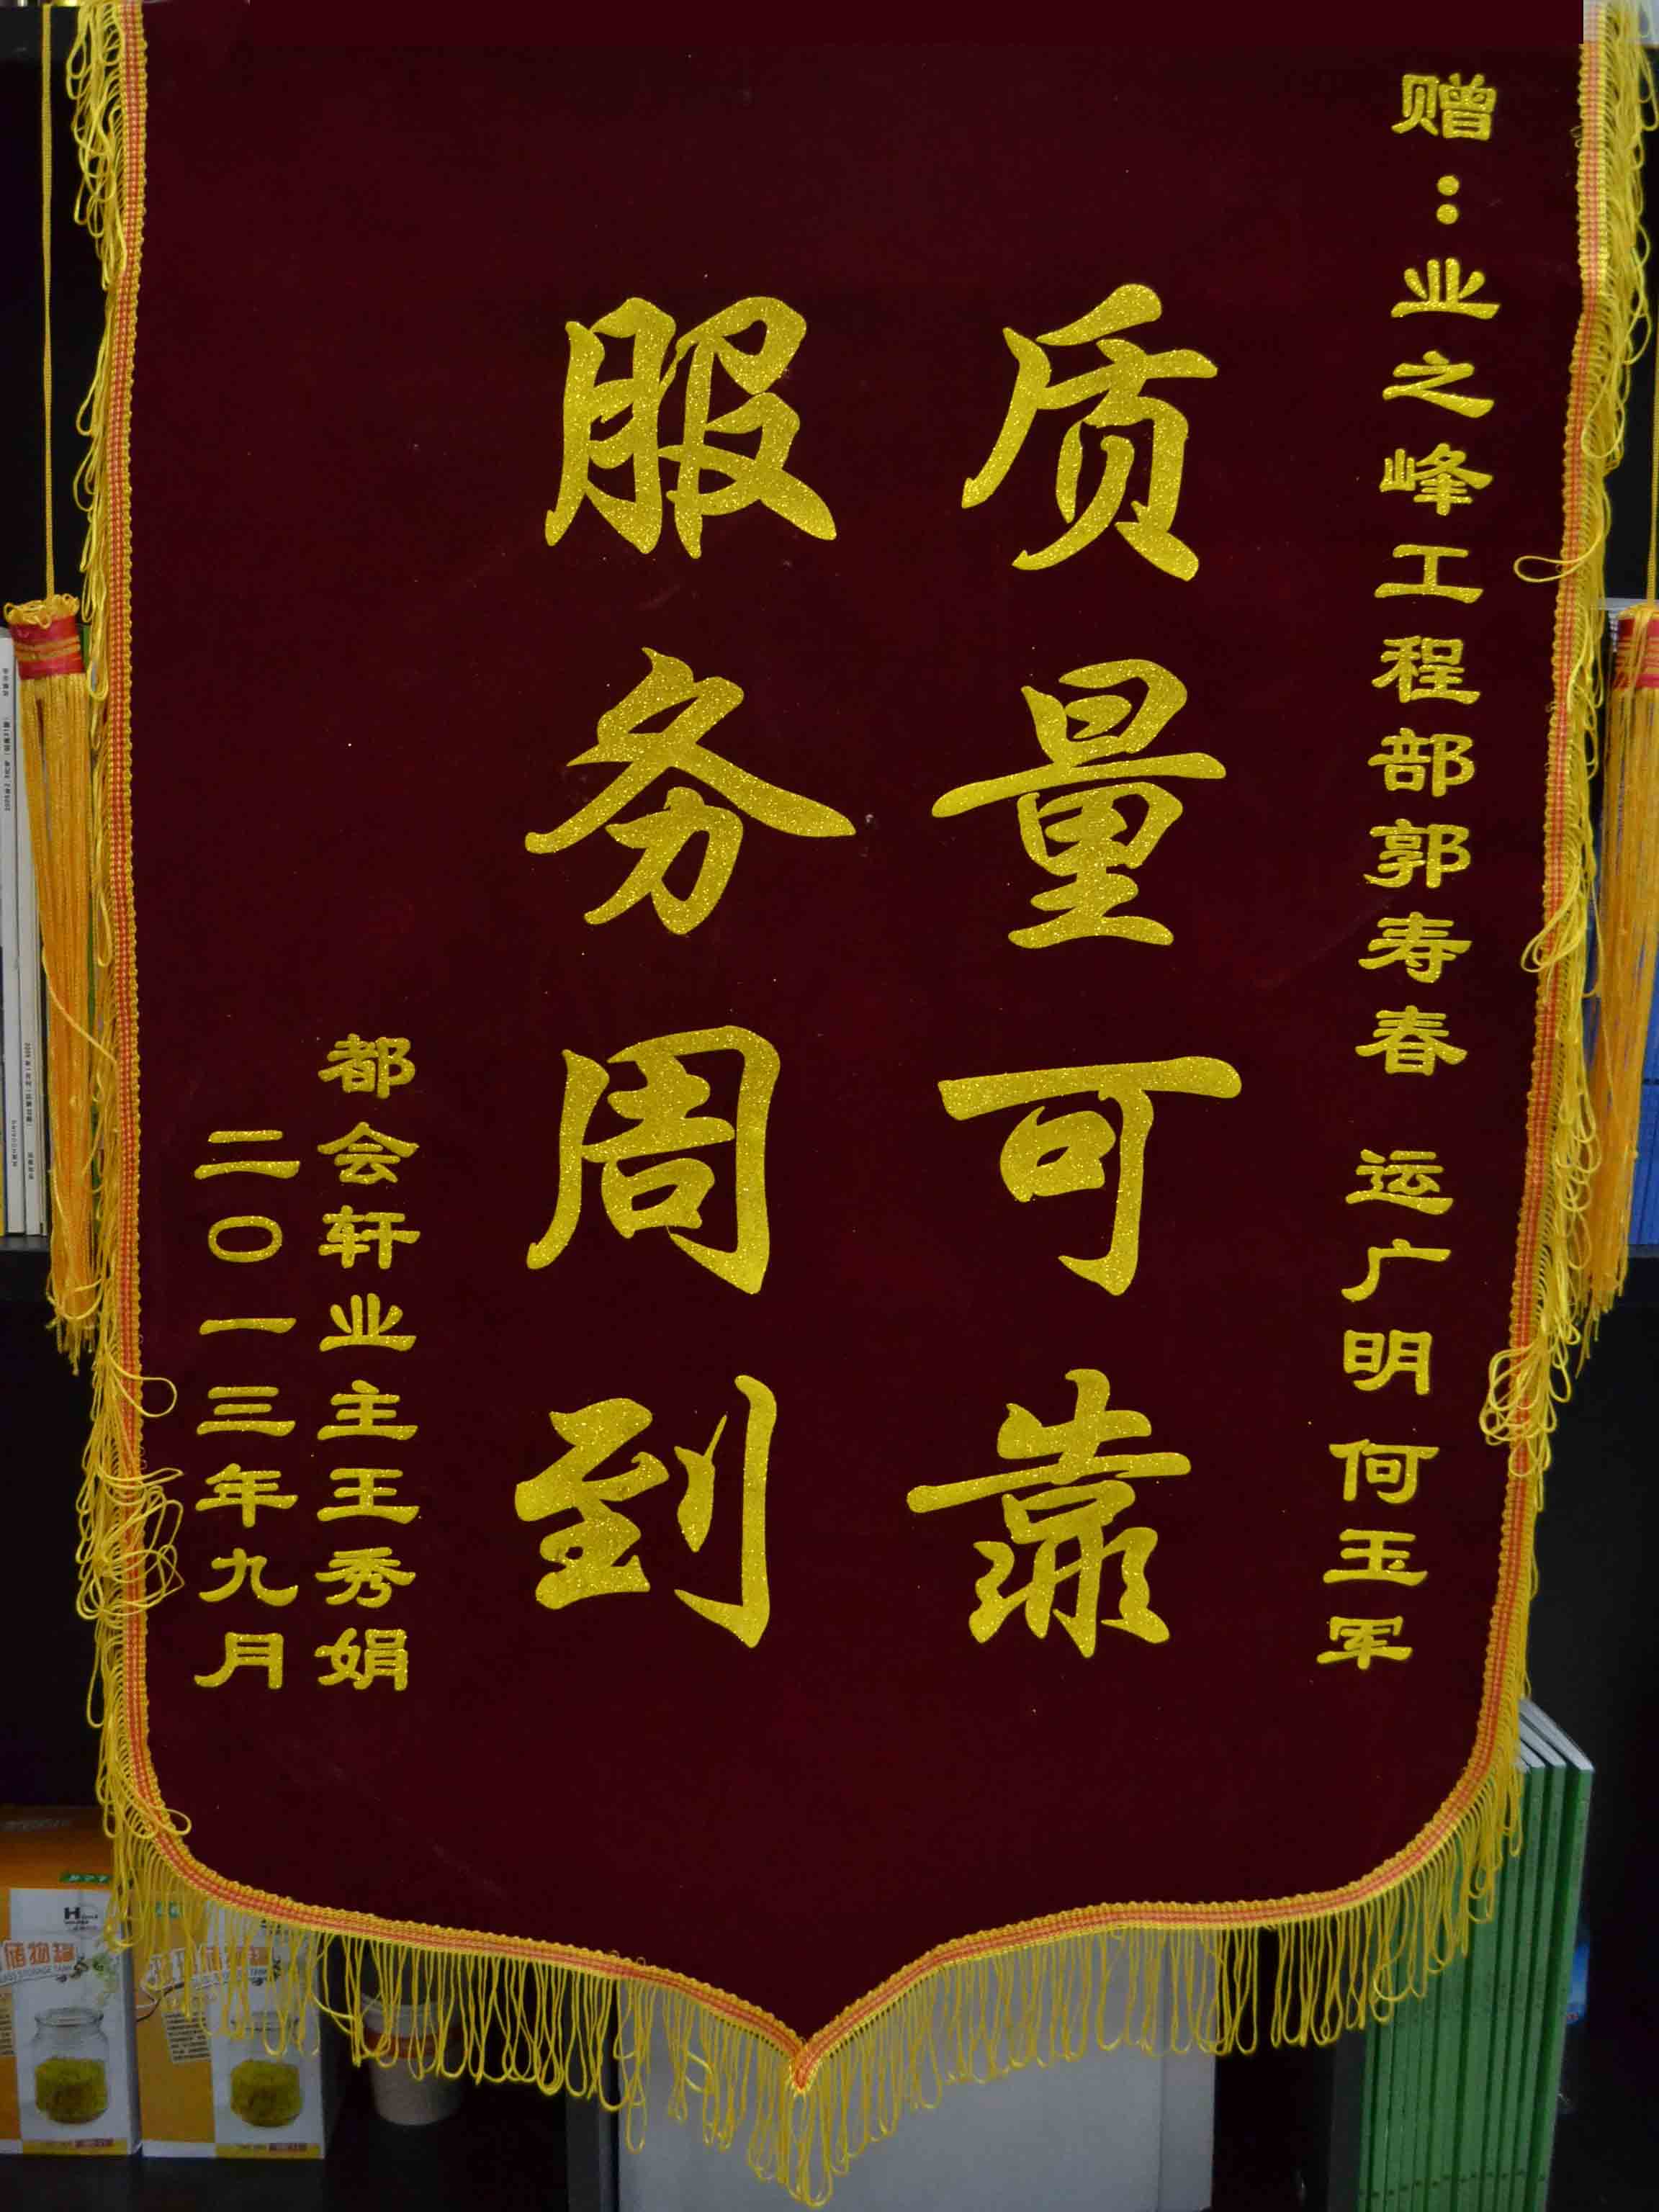 赠：业之峰工程部郭寿春 运广明 何玉军
质量可靠
服务周到
都会轩业主王秀娟
二〇一三年九月
储物罐
储物罐